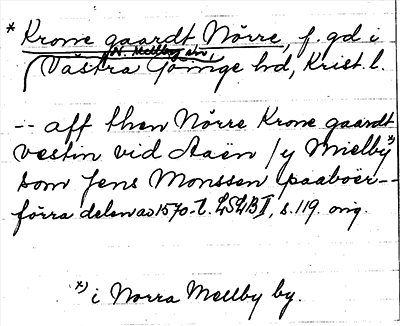 * Krone gaardt, Nörre, f. gd i
N. Mellby sn,
Västra Göinge hd, Krist. l.
-- aff then Nörre Krone gaardt
vestin vid Aaën /y Mielby*)
som Jens Monssen paaboer --
förra delen av 1570-t. LSLB I, s. 119. orig.
*) i Norra Mellby by.